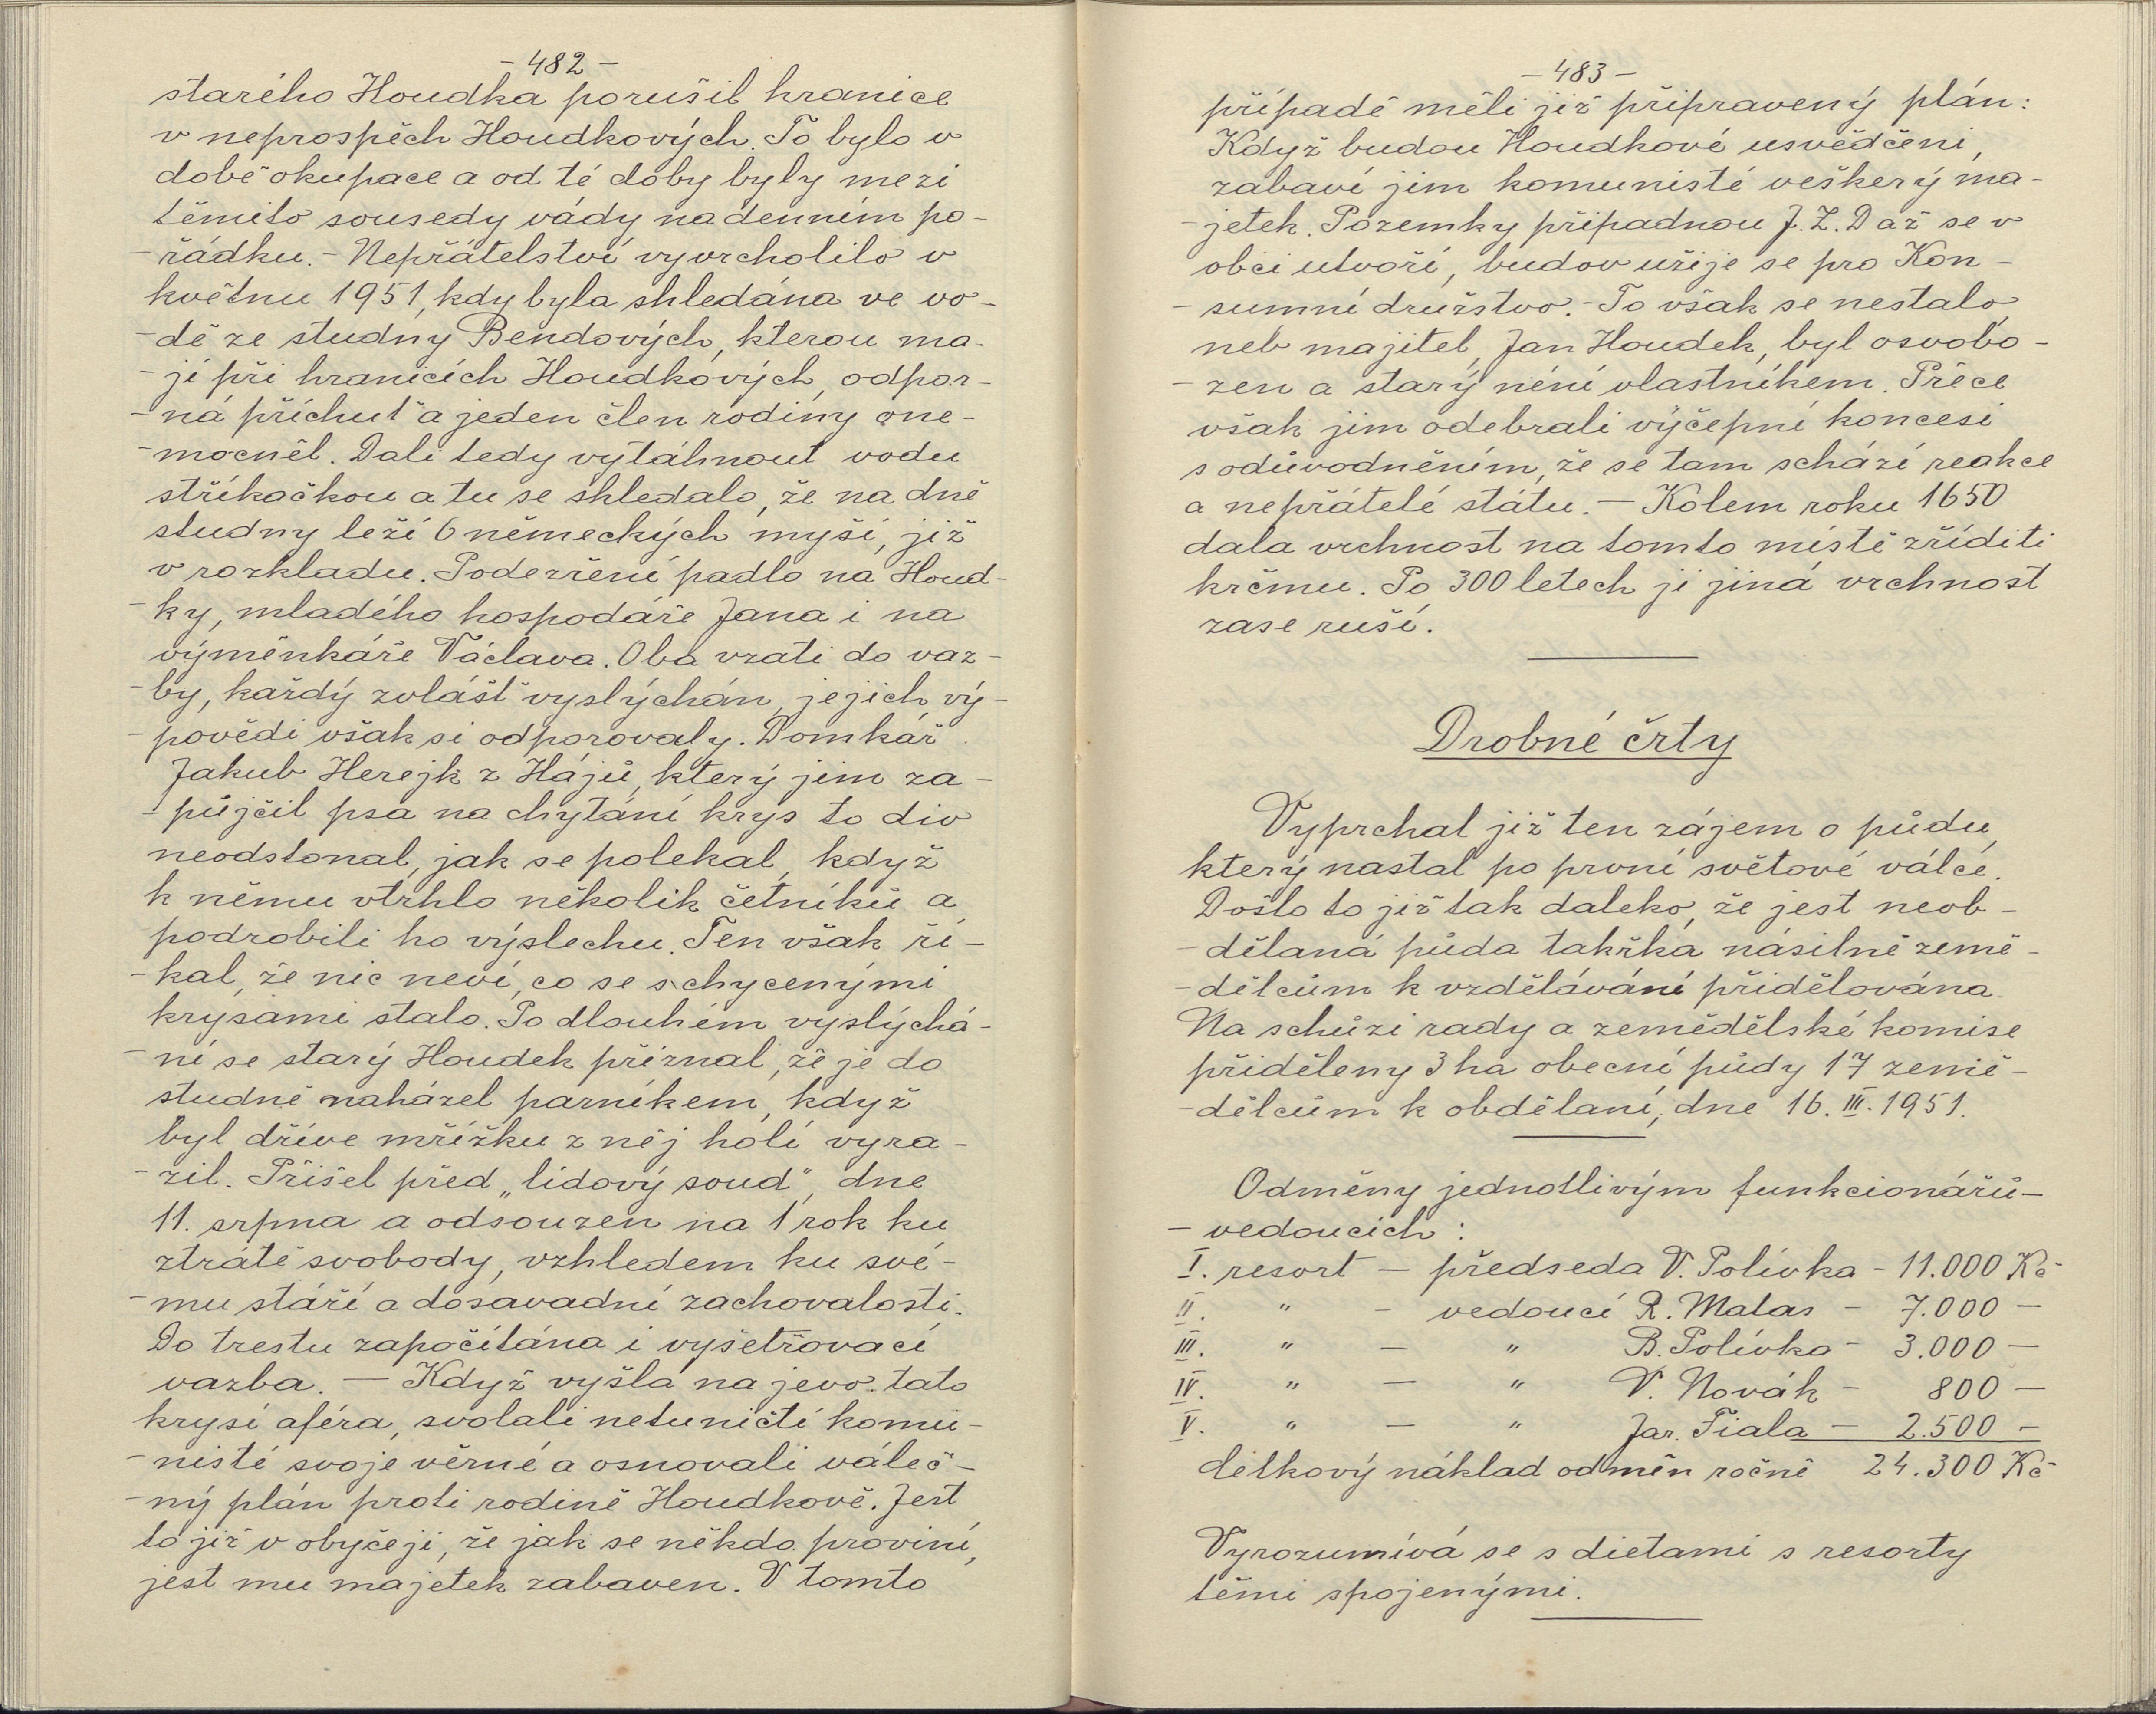 - 482 -
starého Houdka porušil hranice
v neprospěch Houdkových. To bylo v
době okupace a od té doby byly mezi
těmito sousedy vády na denním po-
-řádku. - Nepřátelství vyvrcholilo v
květnu 1951, kdy byla shledána ve vo-
-dě ze studny Bendových, kterou ma-
-jí při hranicích Houdkových, odpor-
-ná příchuť a jeden člen rodiny one-
-mocněl. Dali tedy vytáhnout vodu
stříkačkou a tu se shledalo, že na dně
studny leží 6 německých myší, již
v rozkladu. Podezření padlo na Houd-
-ky, mladého hospodáře Jana i na
výměnkáře Václava. Oba vzati do vaz-
-by, každý zvlášť vyslýchán, jejich vý-
-povědi však si odporovaly. Domkář
Jakub Herejk z Hájů, který jim za-
-půjčil psa na chytání krys to div
neodstonal, jak se polekal, když
k němu vtrhlo několik četníků a
podrobili ho výslechu. Ten však ří-
-kal, že nic neví, co se s chycenými
krysami stalo. Po dlouhém vyslýchá-
-ní se starý Houdek přiznal, že je do
studně naházel parníkem, když
byl dříve mřížku z něj holí vyra-
-zil. Přišel před „lidový soud", dne
11. srpna a odsouzen na 1 rok ku
ztrátě svobody, vzhledem ku své-
-mu stáří a dosavadní zachovalosti.
Do trestu započítána i vyšetřovací
vazba. — Když vyšla na jevo tato
krysí aféra, svolali netuničtí komu-
-nisté svoje věrné a osnovali váleč-
-ný plán proti rodině Houdkově. Jest
to již v obyčeji, že jak se někdo proviní,
jest mu majetek zabaven. V tomto
- 483 -
případě měli již připravený plán:
Když budou Houdkové usvědčeni,
zabaví jim komunisté veškerý ma-
-jetek. Pozemky připadnou J.Z.D až se v
obci utvoří, budov užije se pro Kon-
-sumní družstvo. - To však se nestalo,
neb majitel, Jan Houdek, byl osvobo-
-zen a starý není vlastníkem. Přece
však jim odebrali výčepní koncesi
s odůvodněním, že se tam schází reakce
a nepřátelé státu. — Kolem roku 1650
dala vrchnost na tomto místě zříditi
krčmu. Po 300 letech ji jiná vrchnost
zase ruší.
Drobné črty
Vyprchal již ten zájem o půdu,
který nastal po první světové válce.
Došlo to již tak daleko, že jest neob-
-dělaná půda takřka násilně země-
-dělcům k vzdělávání přidělována.
Na schůzi rady a zemědělské komise
přiděleny 3 ha obecní půdy 17 země-
-dělcům k obdělaní, dne 16. III. 1951.
Odměny jednotlivým funkcionářů-
-vedoucích:
I. resort — předseda V. Polívka - 11.000 Kč
II. " - vedoucí R. Malas - 7.000 —
III. " — " B. Polívka - 3.000 —
IV. " — " V. Novák - 800 —
V. " — " Jar. Fiala — 2.500 -
Celkový náklad odměn ročně 24.300 Kč
Vyrozumívá se s dietami s resorty
těmi spojenými.